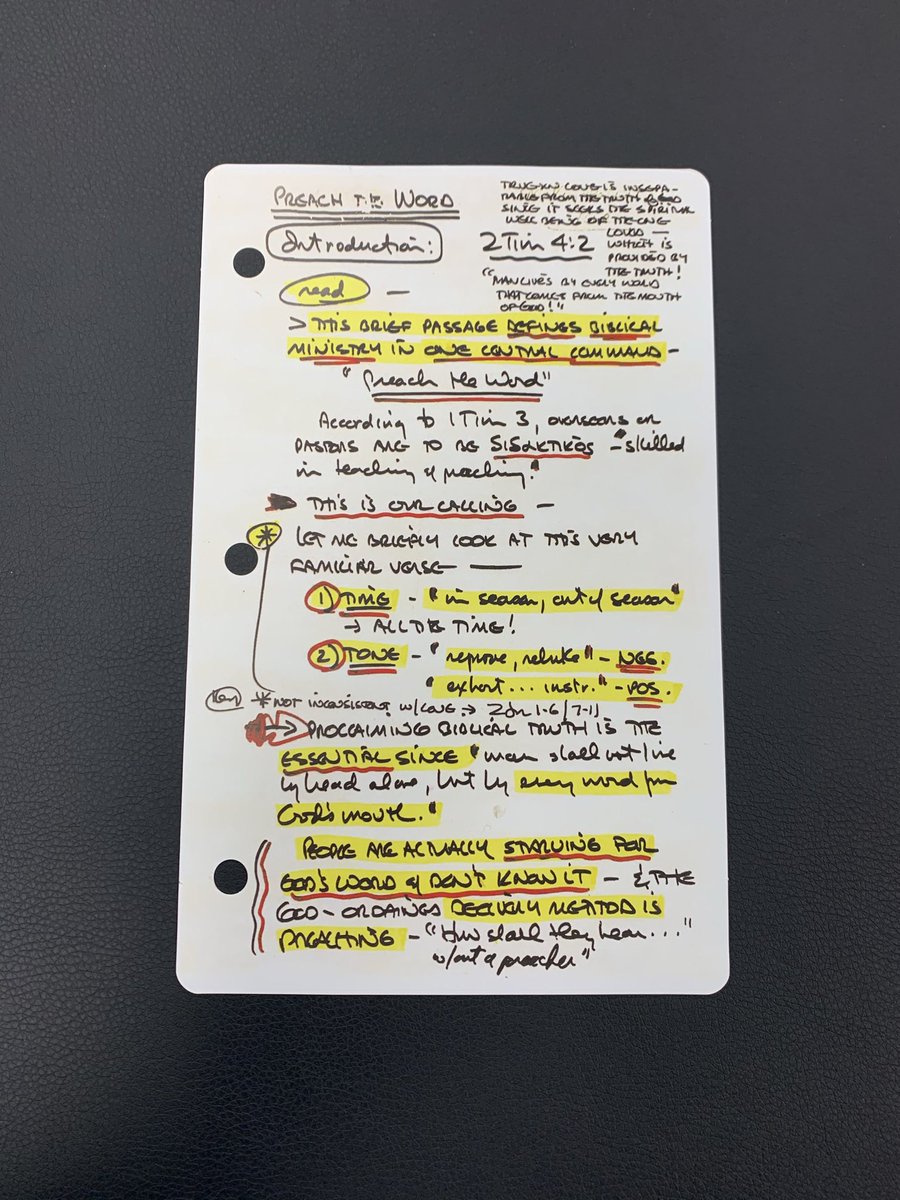 PREACH THE WORD
TRUE LOVE IS INSEPA-
RABLE FROM THE TRUTH OF GOD
SINCE IT SEEKS THE SPIRITUAL
WELL BEING OF THE ONE
LOVED —
WHICH IS
PROVIDED BY
THE TRUTH!
"MAN LIVES BY EVERY WORD
THAT COMES FROM THE MOUTH
OF GOD!"
Introduction:
2 Tim 4:2
read —
> THIS BRIEF PASSAGE DEFINES BIBLICAL
MINISTRY IN ONE CENTRAL COMMAND —
"Preach the Word"
According to 1 Tim 3, overseers or
PASTORS ARE TO BE — "skilled
in teaching & preaching."
THIS IS OUR CALLING —
* LET ME BRIEFLY LOOK AT THIS VERY
FAMILIAR VERSE —
1) TIME - "in season, out of season"
→ ALL THE TIME!
2) TONE - "reprove, rebuke" - NEG.
"exhort... instr." - POS.
Key * NOT INCONSISTENT W/LOVE → 2 Jn 1-6/7-11
→ PROCLAIMING BIBLICAL TRUTH IS THE
ESSENTIAL SINCE "man shall not live
by bread alone, but by every word from
God's mouth."
PEOPLE ARE ACTUALLY STARVING FOR
GOD'S WORD & DON'T KNOW IT — & THE
GOD-ORDAINED DELIVERY METHOD IS
PREACHING - "How shall they hear..."
w/out a preacher"